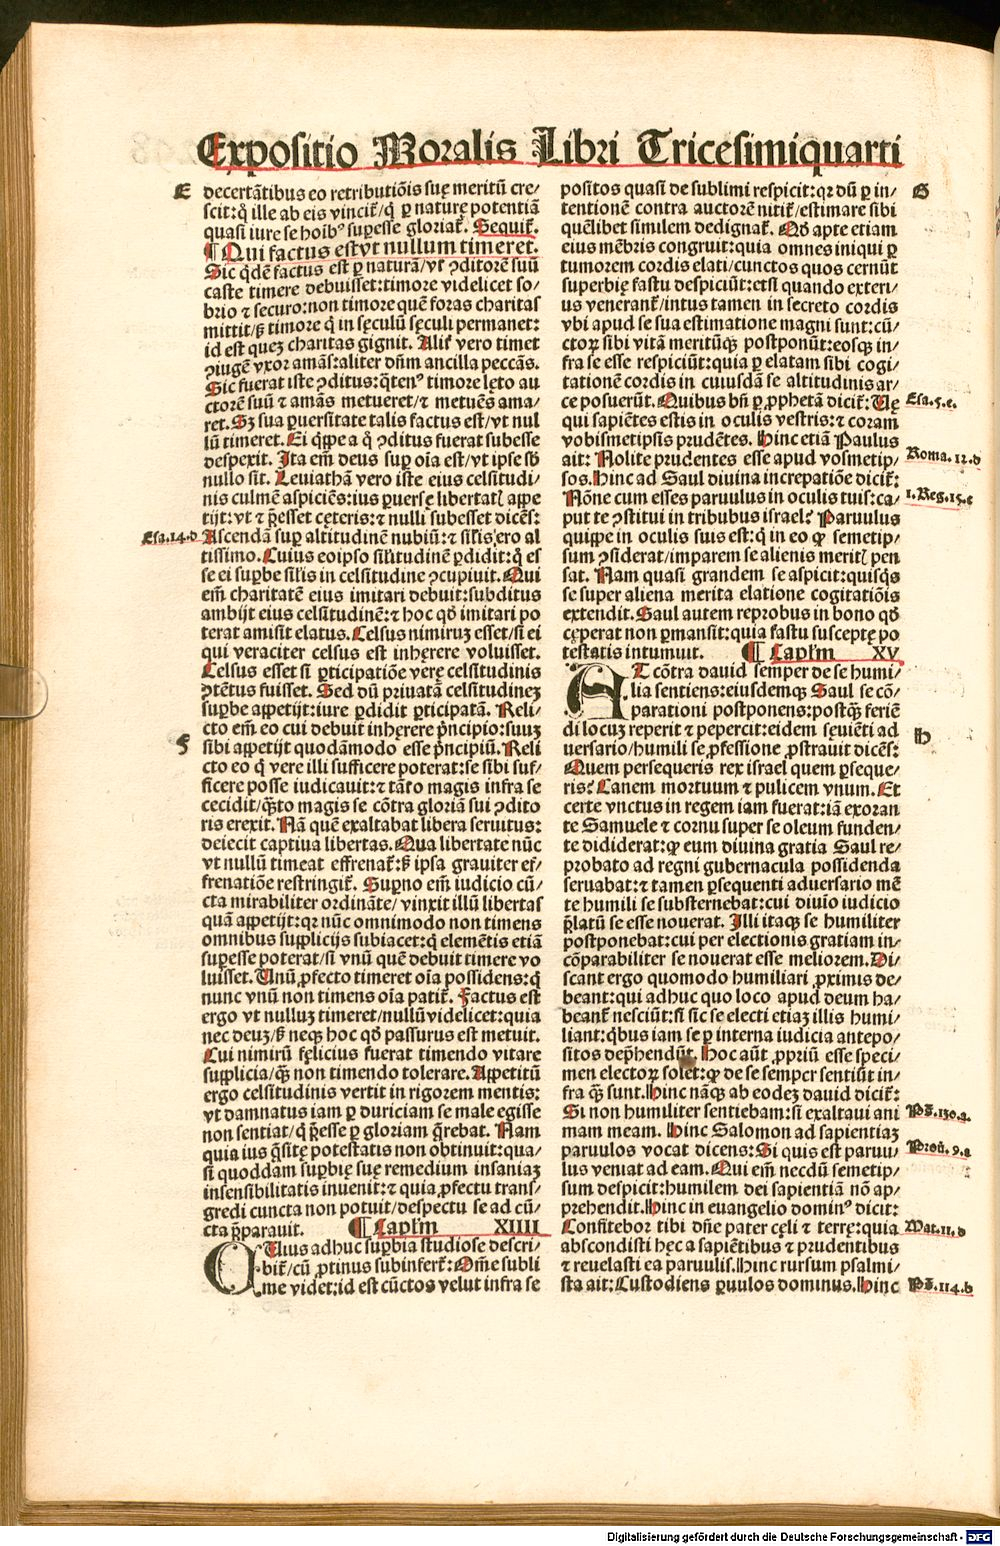 Expositio Moralis Libri Tricesimiquarti
E
decertãtibus eo retributiõis suę meritũ cre/
scit: q̃ ille ab eis vincit̃/ q̃ ꝑ naturę potentiã
quasi iure se hoibꝰ supesse gloriat̃. Sequit̃.
¶ Qui factus est vt nullum timeret.
Sic q̃dẽ factus est ꝑ naturã/ vt ꝯditorẽ suũ
caste timere debuisset: timore videlicet so/
brio ⁊ securo: non timore quẽ foras charitas
mittit/ ß timore q̃ in sęculũ sęculi permanet:
id est quez charitas gignit. Alit̃ vero timet
ꝯiugẽ vxor amãs: aliter dñm ancilla peccãs.
Sic fuerat iste ꝯditus: q̃tenꝰ timore lęto au
ctorẽ suũ ⁊ amãs metueret/ ⁊ metuẽs ama/
ret. Sꝫ sua ꝑuersitate talis factus est/ vt nul
lũ timeret. Ei q̃ppe a q̃ ꝯditus fuerat subesse
despexit. Ita em̃ deus sup̱ oĩa est/ vt ipse sb̃
nullo sit. Leuiathã vero iste eius celsitudi/
nis culmẽ aspiciẽs: ius ꝑuerse libertatꝭ appe
tijt: vt ⁊ p̃esset cęteris: ⁊ nulli subesset dicẽs:
Esa.14.d
Ascendã sup̱ altitudinẽ nubiũ: ⁊ sil̃is ero al
tissimo. Cuius eoipso sil̃itudinẽ ꝑdidit: q̃ es
se ei supbe sil̃is in celsitudine ꝯcupiuit. Qui
em̃ charitatẽ eius imitari debuit: subditus
ambijt eius celsitudinẽ: ⁊ hoc qd̃ imitari po
terat amisit elatus. Celsus nimiruz esset/ si ei
qui veraciter celsus est inhęrere voluisset.
Celsus esset si ꝑticipatiõe verę celsitudinis
ꝯtẽtus fuisset. Sed dũ priuatã celsitudinez
supbe appetijt: iure ꝑdidit ꝑticipatã. Reli/
cto em̃ eo cui debuit inhęrere p̃ncipio: suuz
F
sibi appetijt quodãmodo esse p̃ncipiũ. Reli
cto eo q̃ vere illi sufficere poterat: se sibi suf/
ficere posse iudicauit: ⁊ tãto magis infra se
cecidit/ q̃sto magis se cõtra gloriã sui ꝯdito
ris erexit. Nã quẽ exaltabat libera seruitus:
deiecit captiua libertas. Qua libertate nũc
vt nullũ timeat effrenat̃: ß ipsa grauiter ef/
frenatiõe restringit̃. Supno em̃ iudicio cũ/
cta mirabiliter ordinãte/ vinxit illũ libertas
quã appetijt: qꝛ nũc omnimodo non timens
omnibus supplicijs subiacet: q̃ elemẽtis etiã
supesse poterat/ si vnũ quẽ debuit timere vo
luisset. Unũ ꝓfecto timeret oĩa possidens: q̃
nunc vnũ non timens oĩa patit̃. Factus est
ergo vt nulluz timeret/ nullũ videlicet: quia
nec deuz/ ß neqꝫ hoc qd̃ passurus est metuit.
Cui nimirũ fęlicius fuerat timendo vitare
supplicia/ q̃ꝫ non timendo tolerare. Appetitũ
ergo celsitudinis vertit in rigorem mentis:
vt damnatus iam ꝑ duriciam se male egisse
non sentiat/ q̃ p̃esse ꝑ gloriam q̃rebat. Nam
quia ius q̃sitę potestatis non obtinuit: qua/
si quoddam supbię suę remedium insaniaz
insensibilitatis inuenit: ⁊ quia ꝓfectu trans/
gredi cuncta non potuit/ despectu se ad cũ/
cta p̃parauit. ¶ Capl̃m XIIII
QUius adhuc supbia studiose descri/
bit̃/ cũ ꝓtinus subinfert̃: Om̃e subli
me videt: id est cũctos velut infra se
positos quasi de sublimi respicit: qꝛ dũ ꝑ in/
G
tentionẽ contra auctorẽ nitit̃/ estimare sibi
quẽlibet similem dedignat̃. Qd̃ apte etiam
eius mẽbris congruit: quia omnes iniqui ꝑ
tumorem cordis elati/ cunctos quos cernũt
superbię fastu despiciũt: etsi quando exteri/
us venerant̃/ intus tamen in secreto cordis
vbi apud se sua estimatione magni sunt: cũ/
ctoꝝ sibi vitã meritũqꝫ postponũt: eosqꝫ in/
fra se esse respiciũt: quia ꝑ elatam sibi cogi/
tationẽ cordis in cuiusdã se altitudinis ar/
ce posuerũt. Quibus bñ ꝑ ꝓphetã dicit̃: Ue
Esa.5.e.
qui sapiẽtes estis in oculis vestris: ⁊ coram
vobismetipsis prudẽtes. Hinc etiã Paulus
ait: Nolite prudentes esse apud vosmetip/
Roma.12.d
sos. Hinc ad Saul diuina increpatiõe dicit̃:
Nõne cum esses paruulus in oculis tuis: ca/
1.Reg.15.c
put te ꝯstitui in tribubus israel? Paruulus
quippe in oculis suis est: q̃ in eo qꝫ semetip/
sum ꝯsiderat/ imparem se alienis meritꝭ pen
sat. Nam quasi grandem se aspicit: quisq̃s
se super aliena merita elatione cogitatiõis
extendit. Saul autem reprobus in bono qd̃
cęperat non ꝑmansit: quia fastu susceptę po
testatis intumuit. ¶ Capl̃m XV
AT cõtra dauid semper de se humi/
lia sentiens: eiusdemqꝫ Saul se cõ/
parationi postponens: postqꝫ feriẽ
di locuz reperit ⁊ pepercit: eidem sęuiẽti ad
H
uersario/ humili se ꝓfessione ꝓstrauit dicẽs:
Quem persequeris rex israel quem ꝑseque/
ris? Canem mortuum ⁊ pulicem vnum. Et
certe vnctus in regem iam fuerat: iã exoran
te Samuele ⁊ cornu super se oleum funden/
te dididerat: qꝫ eum diuina gratia Saul re/
probato ad regni gubernacula possidenda
seruabat: ⁊ tamen ꝑsequenti aduersario mẽ
te humili se substernebat: cui diuĩo iudicio
p̃latũ se esse nouerat. Illi itaqꝫ se humiliter
postponebat: cui per electionis gratiam in/
cõparabiliter se nouerat esse meliorem. Di/
scant ergo quomodo humiliari ꝓximis de/
beant: qui adhuc quo loco apud deum ha/
beant̃ nesciũt: si sic se electi etiaz illis humi/
liant: q̃bus iam se ꝑ interna iudicia antepo/
sitos dep̃hendũt. Hoc aũt ꝓpriũ esse speci/
men electoꝝ solet: qꝫ de se semper sentiũt in/
fra q̃ꝫ sunt. Hinc nãqꝫ ab eodez dauid dicit̃:
Si non humiliter sentiebam: si exaltaui ani
Ps̃.130.a.
mam meam. Hinc Salomon ad sapientiaz
paruulos vocat dicens: Si quis est paruu/
Prou̇.9.a
lus veniat ad eam. Qui em̃ necdũ semetip/
sum despicit: humilem dei sapientiã nõ ap/
prehendit. Hinc in euangelio dominꝰ dicit:
Confitebor tibi dñe pater cęli ⁊ terrę: quia
Mat.11.d
abscondisti hęc a sapiẽtibus ⁊ prudentibus
⁊ reuelasti ea paruulis. Hinc rursum psalmi/
sta ait: Custodiens ꝑuulos dominus. Hinc
Ps̃.114.b
Digitalisierung gefördert durch die Deutsche Forschungsgemeinschaft - DFG